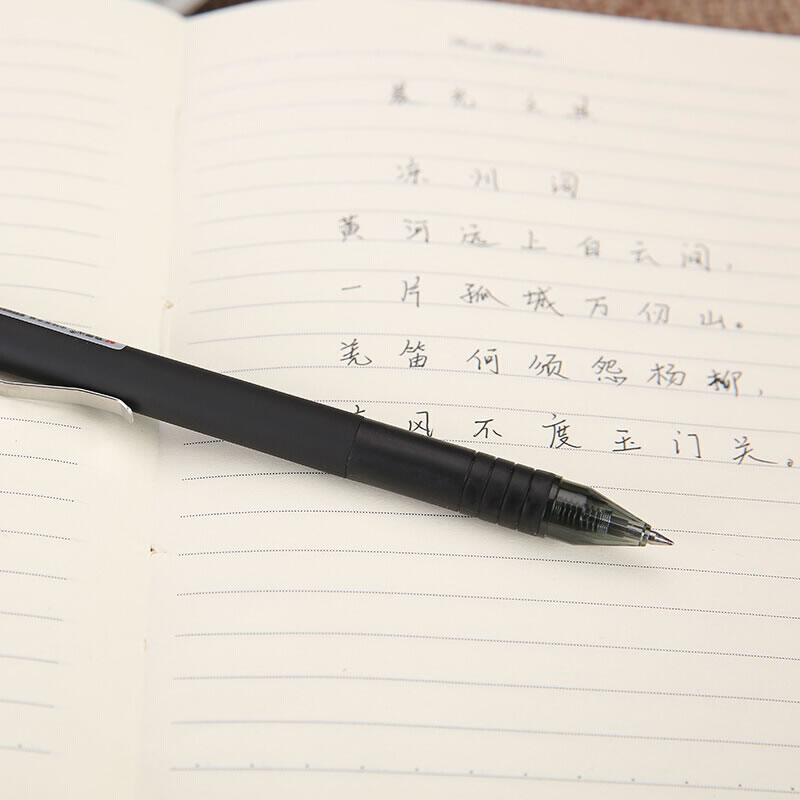 光文具
凉州词
黄河远上白云间,
一片孤城万仞山。
羌笛何须怨杨柳,
风不度玉门关。